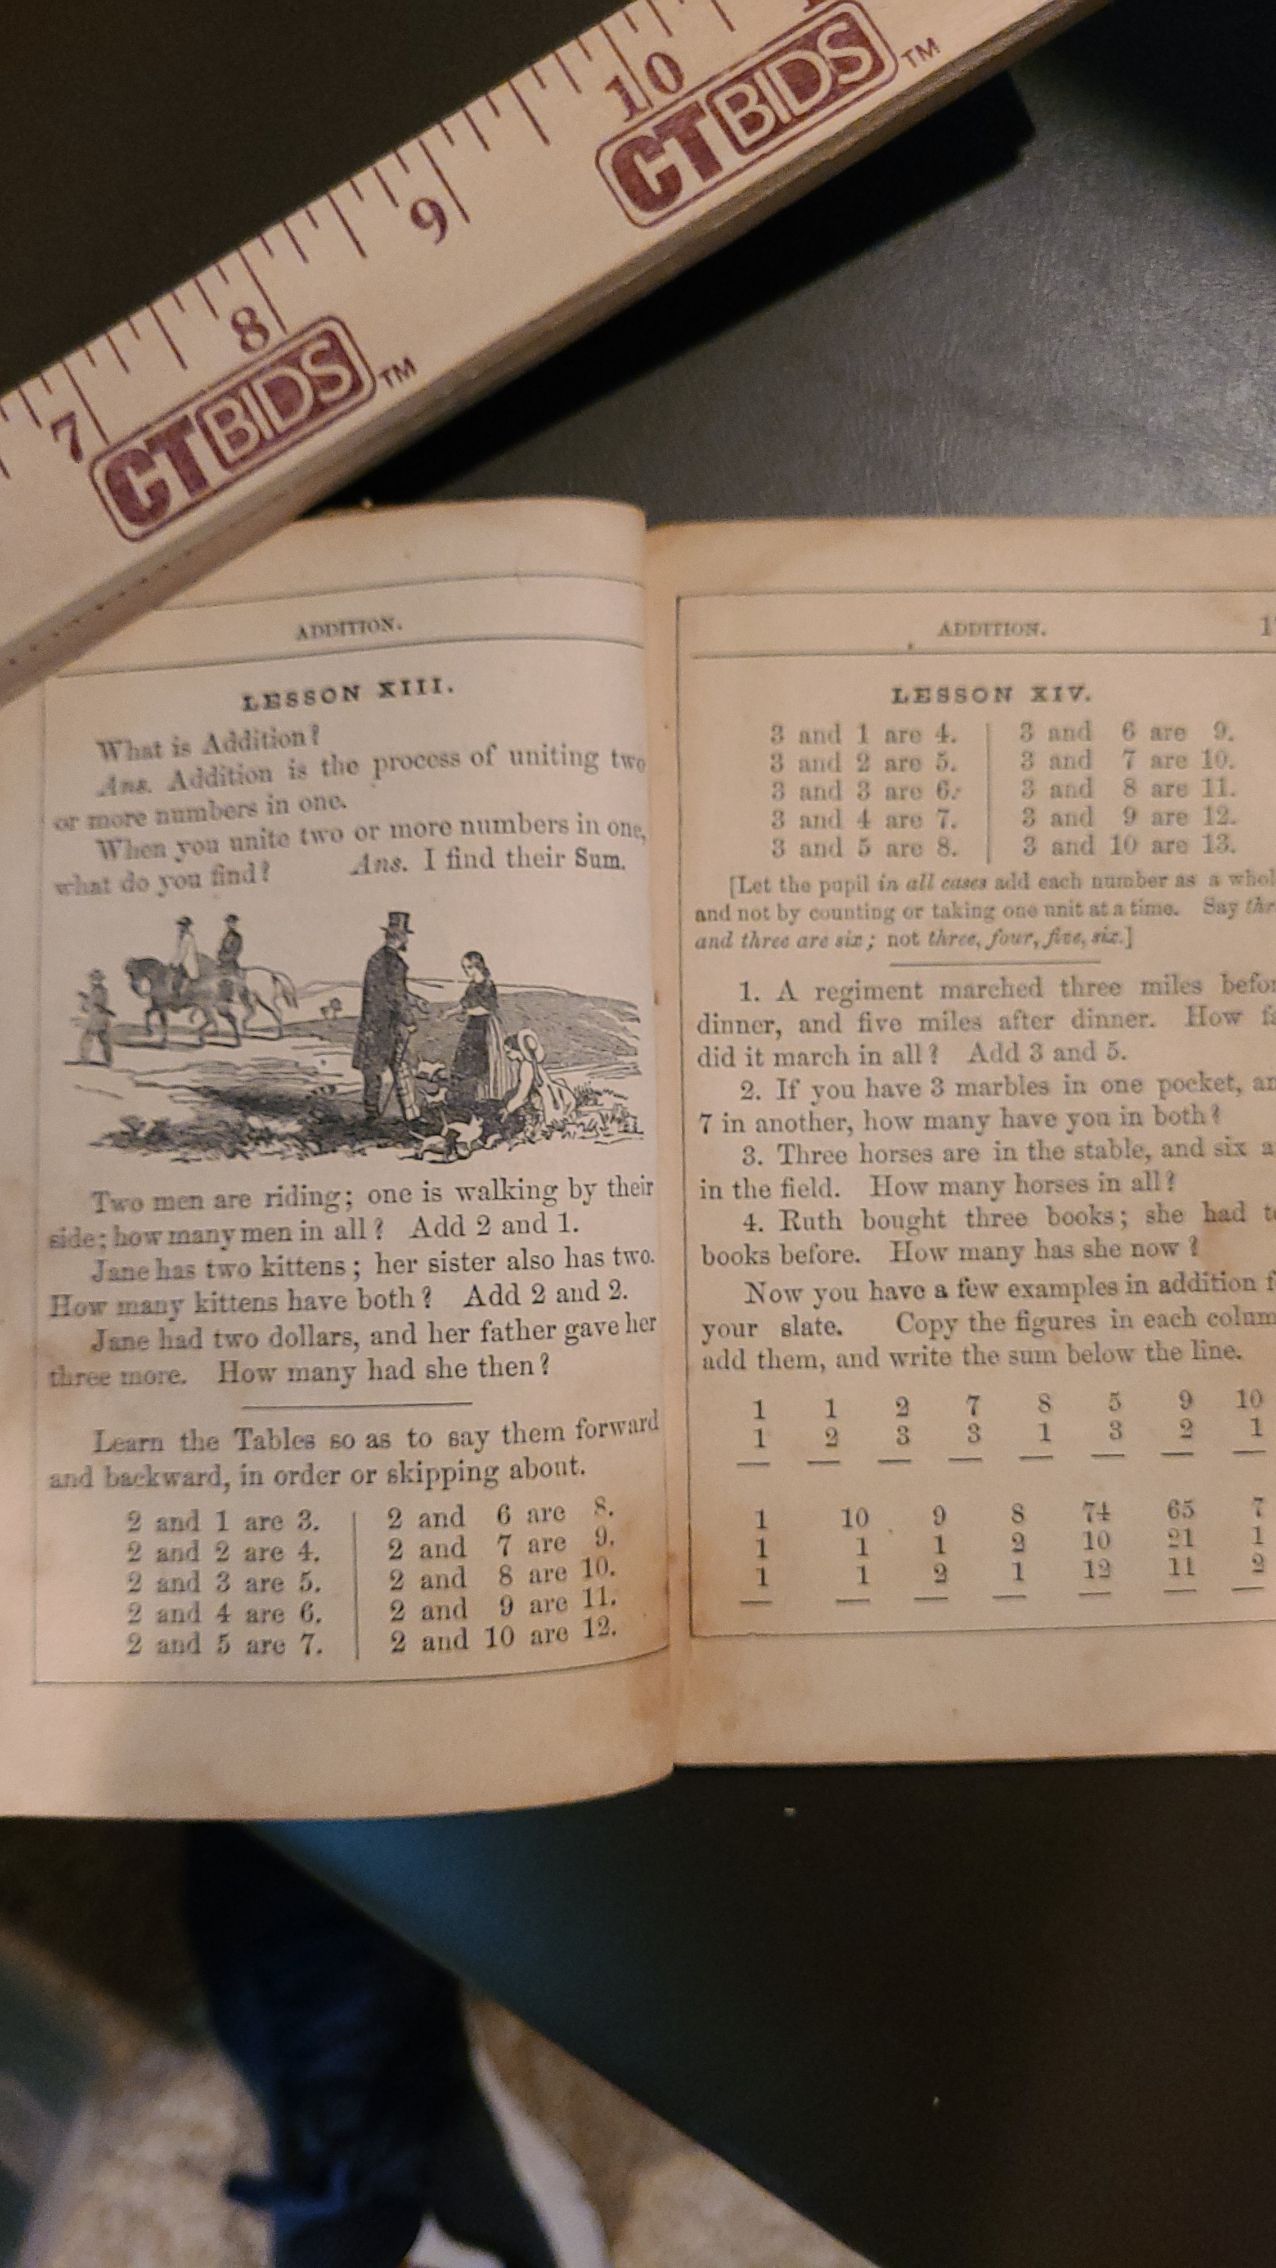 7 8 9 10
CTBIDS™ CTBIDS™
ADDITION.
LESSON XIII.
What is Addition?
Ans. Addition is the process of uniting two
or more numbers in one.
When you unite two or more numbers in one,
what do you find? Ans. I find their Sum.
Two men are riding; one is walking by their
side; how many men in all? Add 2 and 1.
Jane has two kittens; her sister also has two.
How many kittens have both? Add 2 and 2.
Jane had two dollars, and her father gave her
three more. How many had she then?
Learn the Tables so as to say them forward
and backward, in order or skipping about.
2 and 1 are 3. | 2 and 6 are 8.
2 and 2 are 4. | 2 and 7 are 9.
2 and 3 are 5. | 2 and 8 are 10.
2 and 4 are 6. | 2 and 9 are 11.
2 and 5 are 7. | 2 and 10 are 12.
ADDITION.
LESSON XIV.
3 and 1 are 4. | 3 and 6 are 9.
3 and 2 are 5. | 3 and 7 are 10.
3 and 3 are 6. | 3 and 8 are 11.
3 and 4 are 7. | 3 and 9 are 12.
3 and 5 are 8. | 3 and 10 are 13.
[Let the pupil in all cases add each number as a whol
and not by counting or taking one unit at a time. Say thr
and three are six; not three, four, five, six.]
1. A regiment marched three miles befor
dinner, and five miles after dinner. How fa
did it march in all? Add 3 and 5.
2. If you have 3 marbles in one pocket, an
7 in another, how many have you in both?
3. Three horses are in the stable, and six a
in the field. How many horses in all?
4. Ruth bought three books; she had te
books before. How many has she now?
Now you have a few examples in addition f
your slate. Copy the figures in each colum
add them, and write the sum below the line.
1 1 2 7 8 5 9 10
1 2 3 3 1 3 2 1
1 10 9 8 74 65 7
1 1 1 2 10 21 1
1 1 2 1 12 11 2